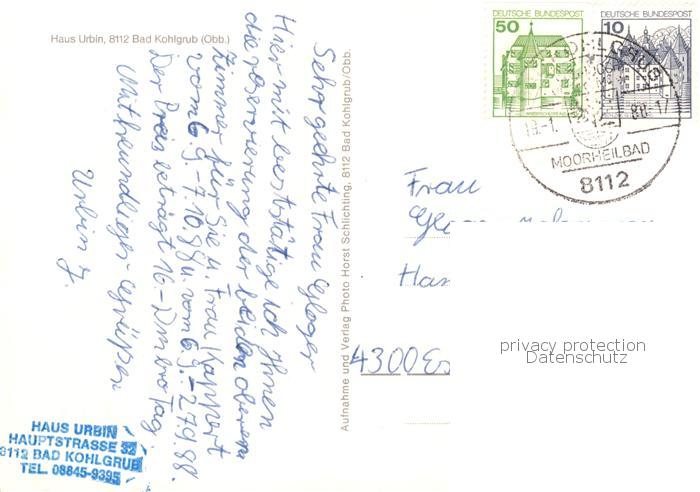 Haus Urbin, 8112 Bad Kohlgrub (Obb.)
Sehr geehrte Frau Gloger
Hier mit bestätige ich Ihnen
die reservierung der beiden oberen
Zimmer für Sie u. Frau Kappert
vom 6.9.-7.10.88 u. vom 6.9.-27.9.88.
Der Preis beträgt 16.- DM pro Tag.
Mit freundlichen Grüßen
Urbin J.
HAUS URBIN
HAUPTSTRASSE 32
8112 BAD KOHLGRUB
TEL. 08845-9395
Aufnahme und Verlag Photo Horst Schlichting, 8112 Bad Kohlgrub/Obb.
DEUTSCHE BUNDESPOST
50
DEUTSCHE BUNDESPOST
10
MOORHEILBAD
8112
Frau
Han
4300 Es
privacy protection
Datenschutz